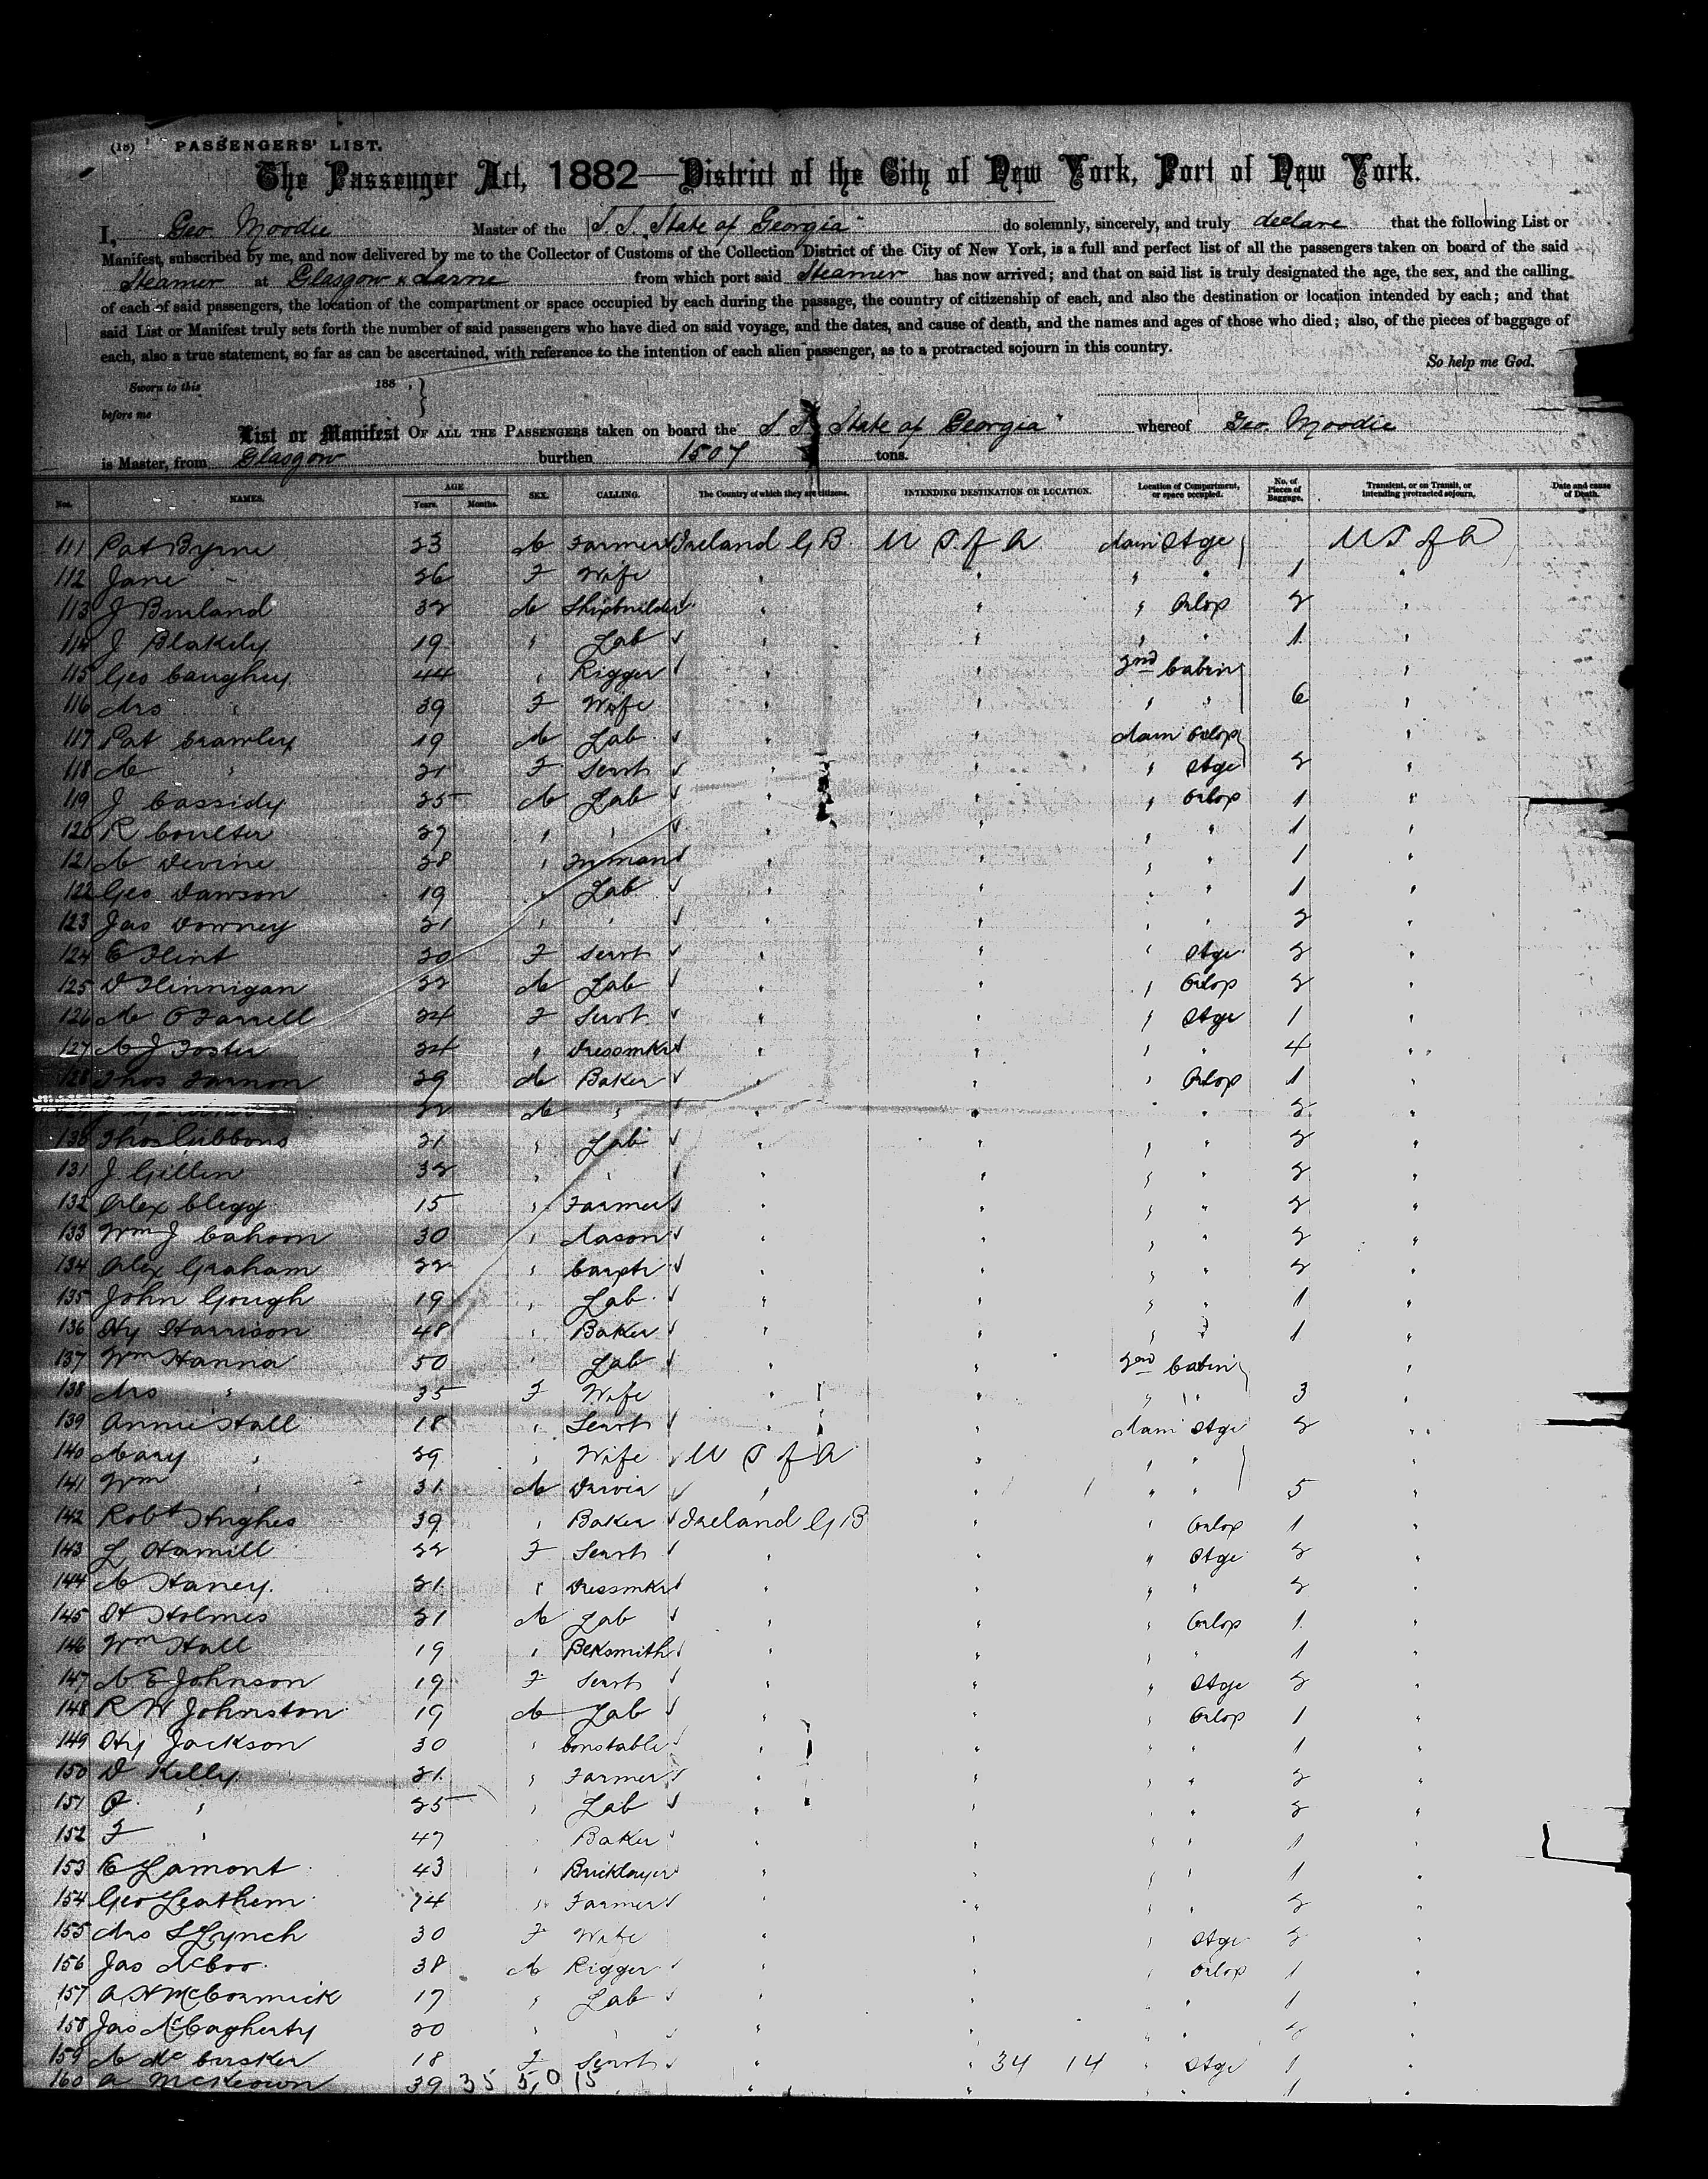 (18) PASSENGERS' LIST.
The Passenger Act, 1882—District of the City of New York, Port of New York.
I, Geo Moodie Master of the S.S. "State of Georgia" do solemnly, sincerely, and truly declare that the following List or
Manifest, subscribed by me, and now delivered by me to the Collector of Customs of the Collection District of the City of New York, is a full and perfect list of all the passengers taken on board of the said
Steamer at Glasgow & Larne from which port said Steamer has now arrived; and that on said list is truly designated the age, the sex, and the calling
of each of said passengers, the location of the compartment or space occupied by each during the passage, the country of citizenship of each, and also the destination or location intended by each; and that
said List or Manifest truly sets forth the number of said passengers who have died on said voyage, and the dates, and cause of death, and the names and ages of those who died; also, of the pieces of baggage of
each, also a true statement, so far as can be ascertained, with reference to the intention of each alien passenger, as to a protracted sojourn in this country.
So help me God.
Sworn to this 188 ,
before me
List or Manifest OF ALL THE PASSENGERS taken on board the S.S. "State of Georgia" whereof Geo. Moodie
is Master, from Glasgow burthen 1507 tons.
Nos. NAMES. AGE Years. Months. SEX. CALLING. The Country of which they are citizens. INTENDING DESTINATION OR LOCATION. Location of Compartment, or space occupied. No. of Pieces of Baggage. Transient, or on Transit, or intending protracted sojourn. Date and cause of Death.
111 Pat Byrne 23 M Farmer Ireland G B U S of A Main Stge U S of A
112 Jane " 26 F Wife " " " " 1 "
113 J Burland 32 M Shipbuilder " " " Orlop 2 "
114 J Blakely 19 " Lab " " " " 1 "
115 Geo Caughey 44 " Rigger " " 2nd Cabin "
116 Mrs " 39 F Wife " " " " 6 "
117 Pat Crawley 19 M Lab " " Main Orlop "
118 M " 21 F Servt " " " Stge 2 "
119 J Cassidy 25 M Lab " " " Orlop 1 "
120 R Coulter 27 " " " " " " 1 "
121 M Devine 28 " " " " " 1 "
122 Geo Dawson 19 " Lab " " " " 1 "
123 Jas Downey 21 " " " " " " 2 "
124 E Flint 20 F Servt " " " Stge 2 "
125 D Flinnigan 22 M Lab " " " Orlop 2 "
126 M O'Farrell 24 F Servt " " " Stge 1 "
127 M J Foster 24 " Dressmkr " " " " 4 "
128 Thos Farnon 29 M Baker " " " Orlop 1 "
22 M " " " " " 2 "
130 Thos Gibbons 21 " Lab " " " " 2 "
131 J. Gillen 32 " " " " " " 2 "
132 Alex Clegg 15 " Farmer " " " " 2 "
133 Wm J Cahoon 30 " Mason " " " " 2 "
134 Alex Graham 22 " Carptr " " " " 2 "
135 John Gough 19 " Lab " " " " 1 "
136 Hy Harrison 48 " Baker " " " " 1 "
137 Wm Hanna 50 " Lab " " 2nd Cabin "
138 Mrs " 35 F Wife " " " " 3 "
139 Annie Hall 18 " Servt " " Main Stge 2 "
140 Mary " 29 " Wife U S of A " " " "
141 Wm " 31 M " " " " 5 "
142 Robt Hughes 39 " Baker Ireland G B " " Orlop 1 "
143 L Hamill 22 F Servt " " " Stge 2 "
144 M Haney 21 " Dressmkr " " " " 2 "
145 H Holmes 21 M Lab " " " Orlop 1 "
146 Wm Hall 19 " Blcksmith " " " " 1 "
147 M E Johnson 19 F Servt " " " Stge 2 "
148 R W Johnston 19 M Lab " " " Orlop 1 "
149 Hy Jackson 30 " Constable " " " " 1 "
150 D Kelly 21 " Farmer " " " " 2 "
151 P " 25 " Lab " " " " 2 "
152 F " 47 " Baker " " " " 1 "
153 E Lamont 43 " Bricklayer " " " " 1 "
154 Geo Leathem 74 " Farmer " " " " 2 "
155 Mrs S Lynch 30 F Wife " " " Stge 2 "
156 Jas McCoo 38 M Rigger " " " Orlop 1 "
157 A H McCormick 17 " Lab " " " " 1 "
158 Jas McCagherty 20 " " " " " " "
159 M McCusker 18 F Servt " " 34 14 " Stge 1 "
160 A McKeown 39 35 5,0 15 " " " " 1 "